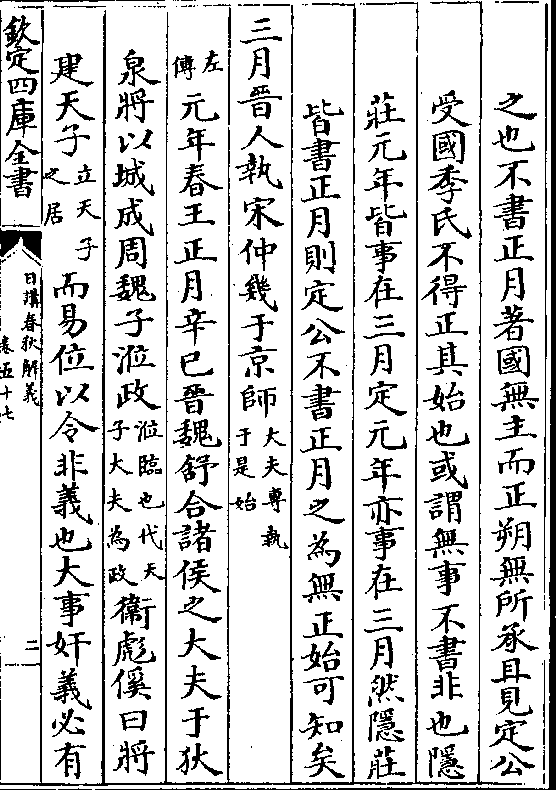 之也不書正月著國無主而正朔無所承且見定公
受國季氏不得正其始也或謂無事不書非也隱
莊元年皆事在三月定元年亦事在三月然隱莊
皆書正月則定公不書正月之為無正始可知矣
三月晉人執宋仲幾于京師大夫專執于是始
左傳元年春王正月辛巳晉魏舒合諸侯之大夫于狄
泉將以城成周魏子涖政涖臨也代天子大夫為政衞彪傒曰將
建天子立天子之居而易位以令非義也大事奸義必有
欽定四庫全書
日講春秋解義
卷五十七
二